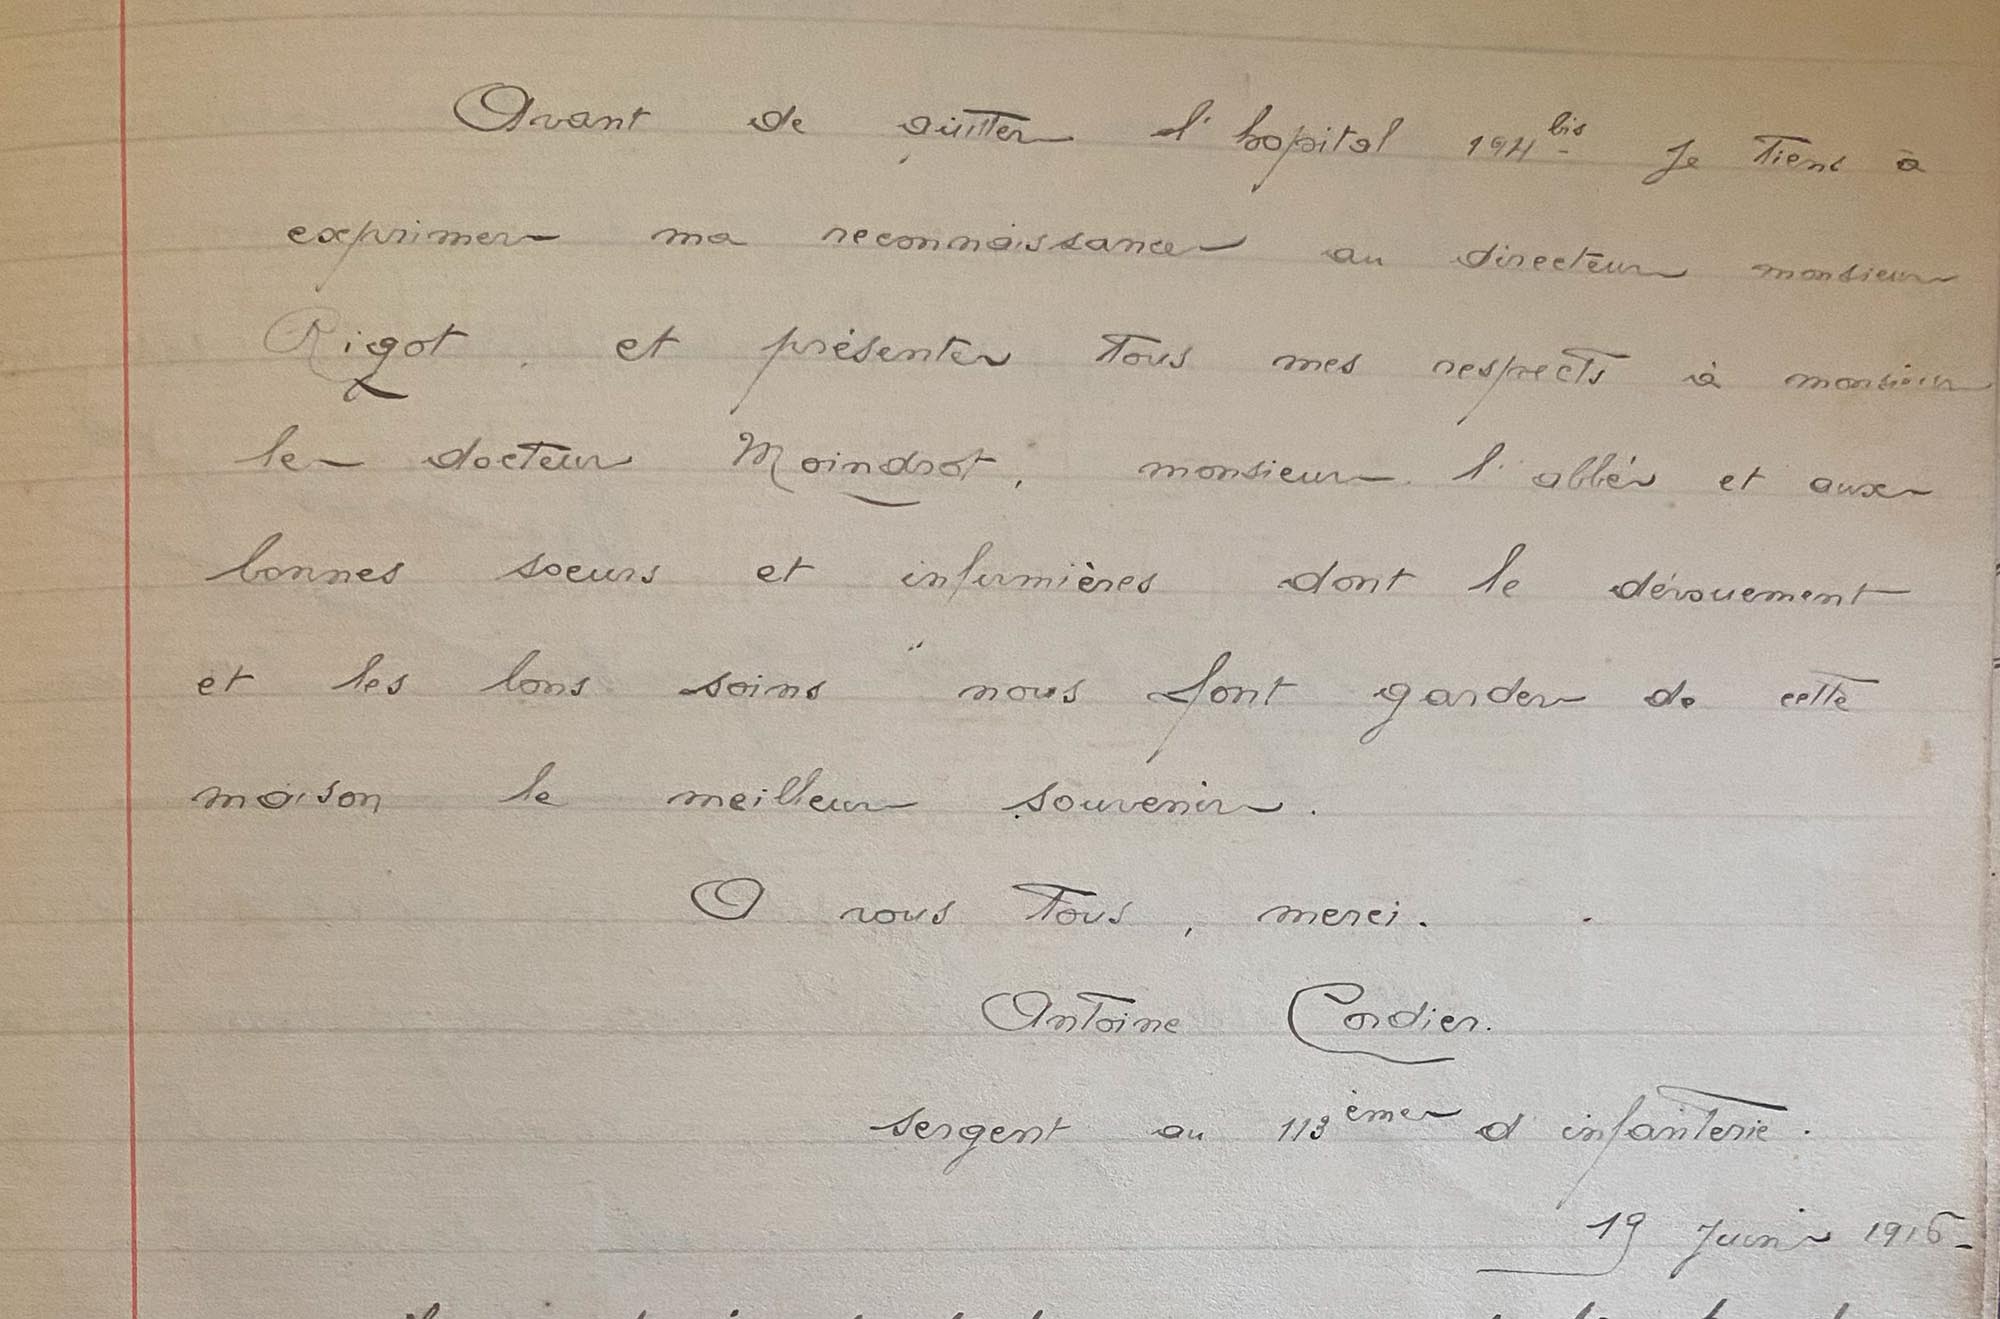 Avant de quitter l'hopital 194 bis je tiens à
exprimer ma reconnaissance au directeur monsieur
Rigot, et présenter tous mes respects à monsieur
le docteur Moindrot, monsieur l'abbé et aux
bonnes soeurs et infirmières dont le dévouement
et les bons soins nous font garder de cette
maison le meilleur souvenir.
A vous tous, merci.
Antoine Cordier.
sergent au 113ème d'infanterie.
19 Juin 1916-